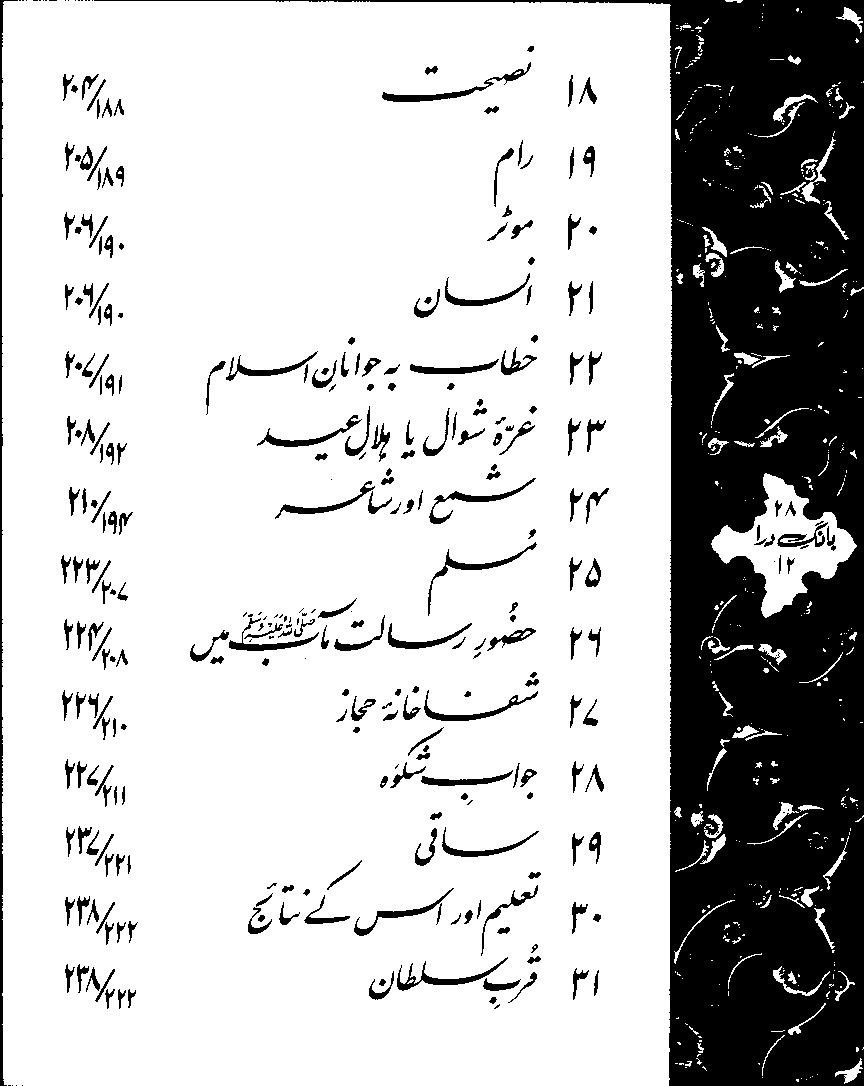 ۱۸ نصیحت ۲۰۴/۱۸۸
۱۹ رام ۲۰۵/۱۸۹
۲۰ موٹر ۲۰۶/۱۹۰
۲۱ انسان ۲۰۶/۱۹۰
۲۲ خطاب بہ جوانانِ اسلام ۲۰۷/۱۹۱
۲۳ غرّۂ شوال یا ہلالِ عید ۲۰۸/۱۹۲
۲۴ شمع اور شاعر ۲۱۰/۱۹۴
۲۵ مُسلم ۲۲۳/۲۰۷
۲۶ حضُورِ رسالت مآب صَلَّی اللہُ عَلَیْہِ وَسَلَّم میں ۲۲۴/۲۰۸
۲۷ شفاخانۂ حجاز ۲۲۶/۲۱۰
۲۸ جوابِ شکوَہ ۲۲۷/۲۱۱
۲۹ ساقی ۲۳۷/۲۲۱
۳۰ تعلیم اور اس کے نتائج ۲۳۸/۲۲۲
۳۱ قُربِ سلطان ۲۳۸/۲۲۲
۲۸
بانگِ درا
۱۲